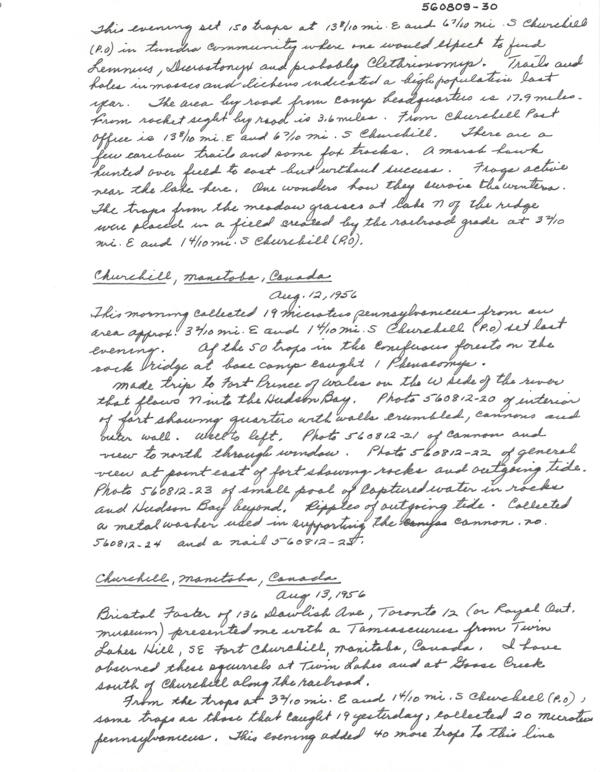 560809-30
This evening set 150 traps at 13 8/10 mi. E and 6 7/10 mi. S Churchill
(P.O) in tundra community where one would expect to find
Lemmus, Dicrostonyx and probably Clethrionomys. Trails and
holes in mosses and lichens indicated a high population last
year. The area by road from camp headquarters is 17.9 miles.
From rocket sight by road is 3.6 miles. From Churchill Post
Office is 13 8/10 mi. E and 6 7/10 mi. S Churchill. There are a
few caribou trails and some fox tracks. A marsh hawk
hunted over field to east but without success. Frogs active
near the lake here. One wonders how they survive the winters.
The traps from the meadow grasses at lake N of the ridge
were placed in a field created by the railroad grade at 3 2/10
mi. E and 1 4/10 mi. S Churchill (P.O).
Churchill, Manitoba, Canada
Aug. 12, 1956
This morning collected 19 microtus pennsylvanicus from an
area approx. 3 2/10 mi. E and 1 4/10 mi. S Churchill (P.O) set last
evening. Of the 50 traps in the coniferous forests on the
rock ridge at base camp caught 1 Phenacomys.
Made trip to Fort Prince of Wales on the W side of the river
that flows N into the Hudson Bay. Photo 560812-20 of interior
of fort showing quarters with walls crumbled, cannons and
outer wall. Well to left. Photo 560812-21 of cannon and
view to north through window. Photo 560812-22 of general
view at point east of fort showing rocks and outgoing tide.
Photo 560812-23 of small pool of captured water in rocks
and Hudson Bay beyond. Ripples of outgoing tide. Collected
a metal washer used in supporting the cannon. no.
560812-24 and a nail 560812-25.
Churchill, Manitoba, Canada
Aug 13, 1956
Bristol Foster of 136 Dawlish Ave, Toronto 12 (or Royal Ont.
Museum) presented me with a Tamiasciurus from Twin
Lakes Hill, SE Fort Churchill, Manitoba, Canada. I have
observed these squirrels at Twin Lakes and at Goose Creek
south of Churchill along the railroad.
From the traps at 3 2/10 mi. E and 1 4/10 mi. S Churchill (P.O),
same traps as those that caught 19 yesterday, collected 20 microtus
pennsylvanicus. This evening added 40 more traps to this line